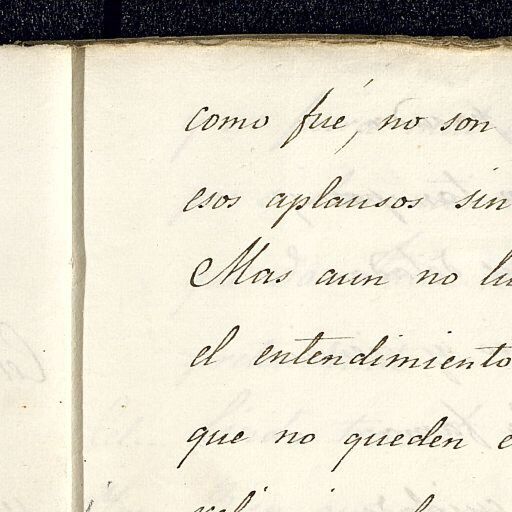 como fué, no son
esos aplausos sin
Mas aun no
el entendimiento
que no queden